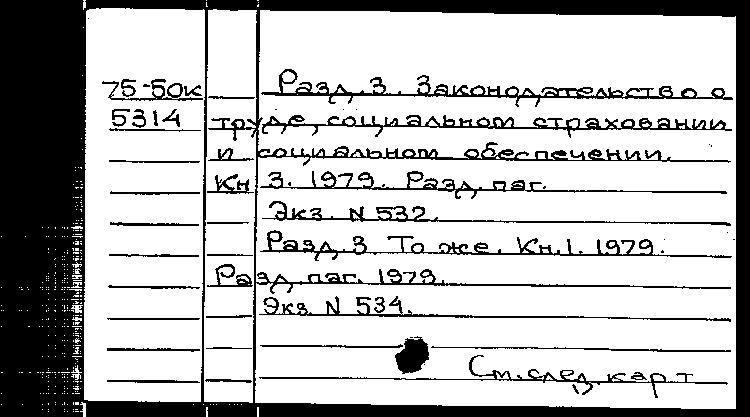 75-50к Разд. 3. Законодательство о
5314 труде, социальном страховании
и социальном обеспечении.
Кн 3. 1979. Разд. паг.
Экз. N 532.
Разд. 3. То же. Кн. 1. 1979.
Разд. паг. 1979.
Экз. N 534.
См. след. карт